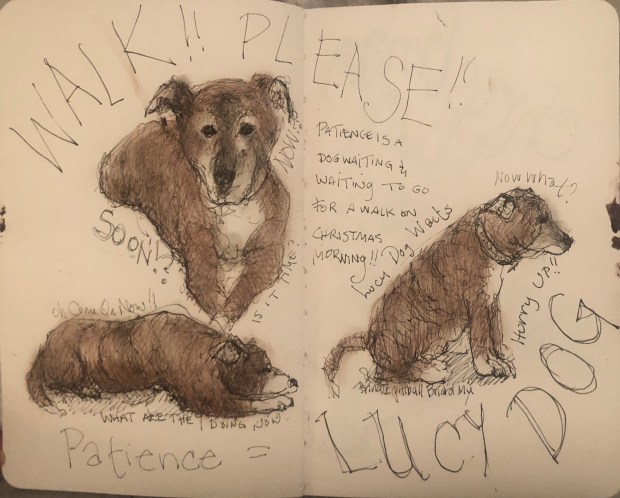 WALK!! PLEASE!!
NOW?
SOON!?
IS IT TIME?
Oh Come On Now!!
WHAT ARE THEY DOING NOW
Patience =
PATIENCE IS A
DOG WAITING &
WAITING TO GO
FOR A WALK ON
CHRISTMAS
MORNING!!
Lucy Dog Waits
Now What?
Hurry Up!!
Brindle pitbull
LUCY DOG